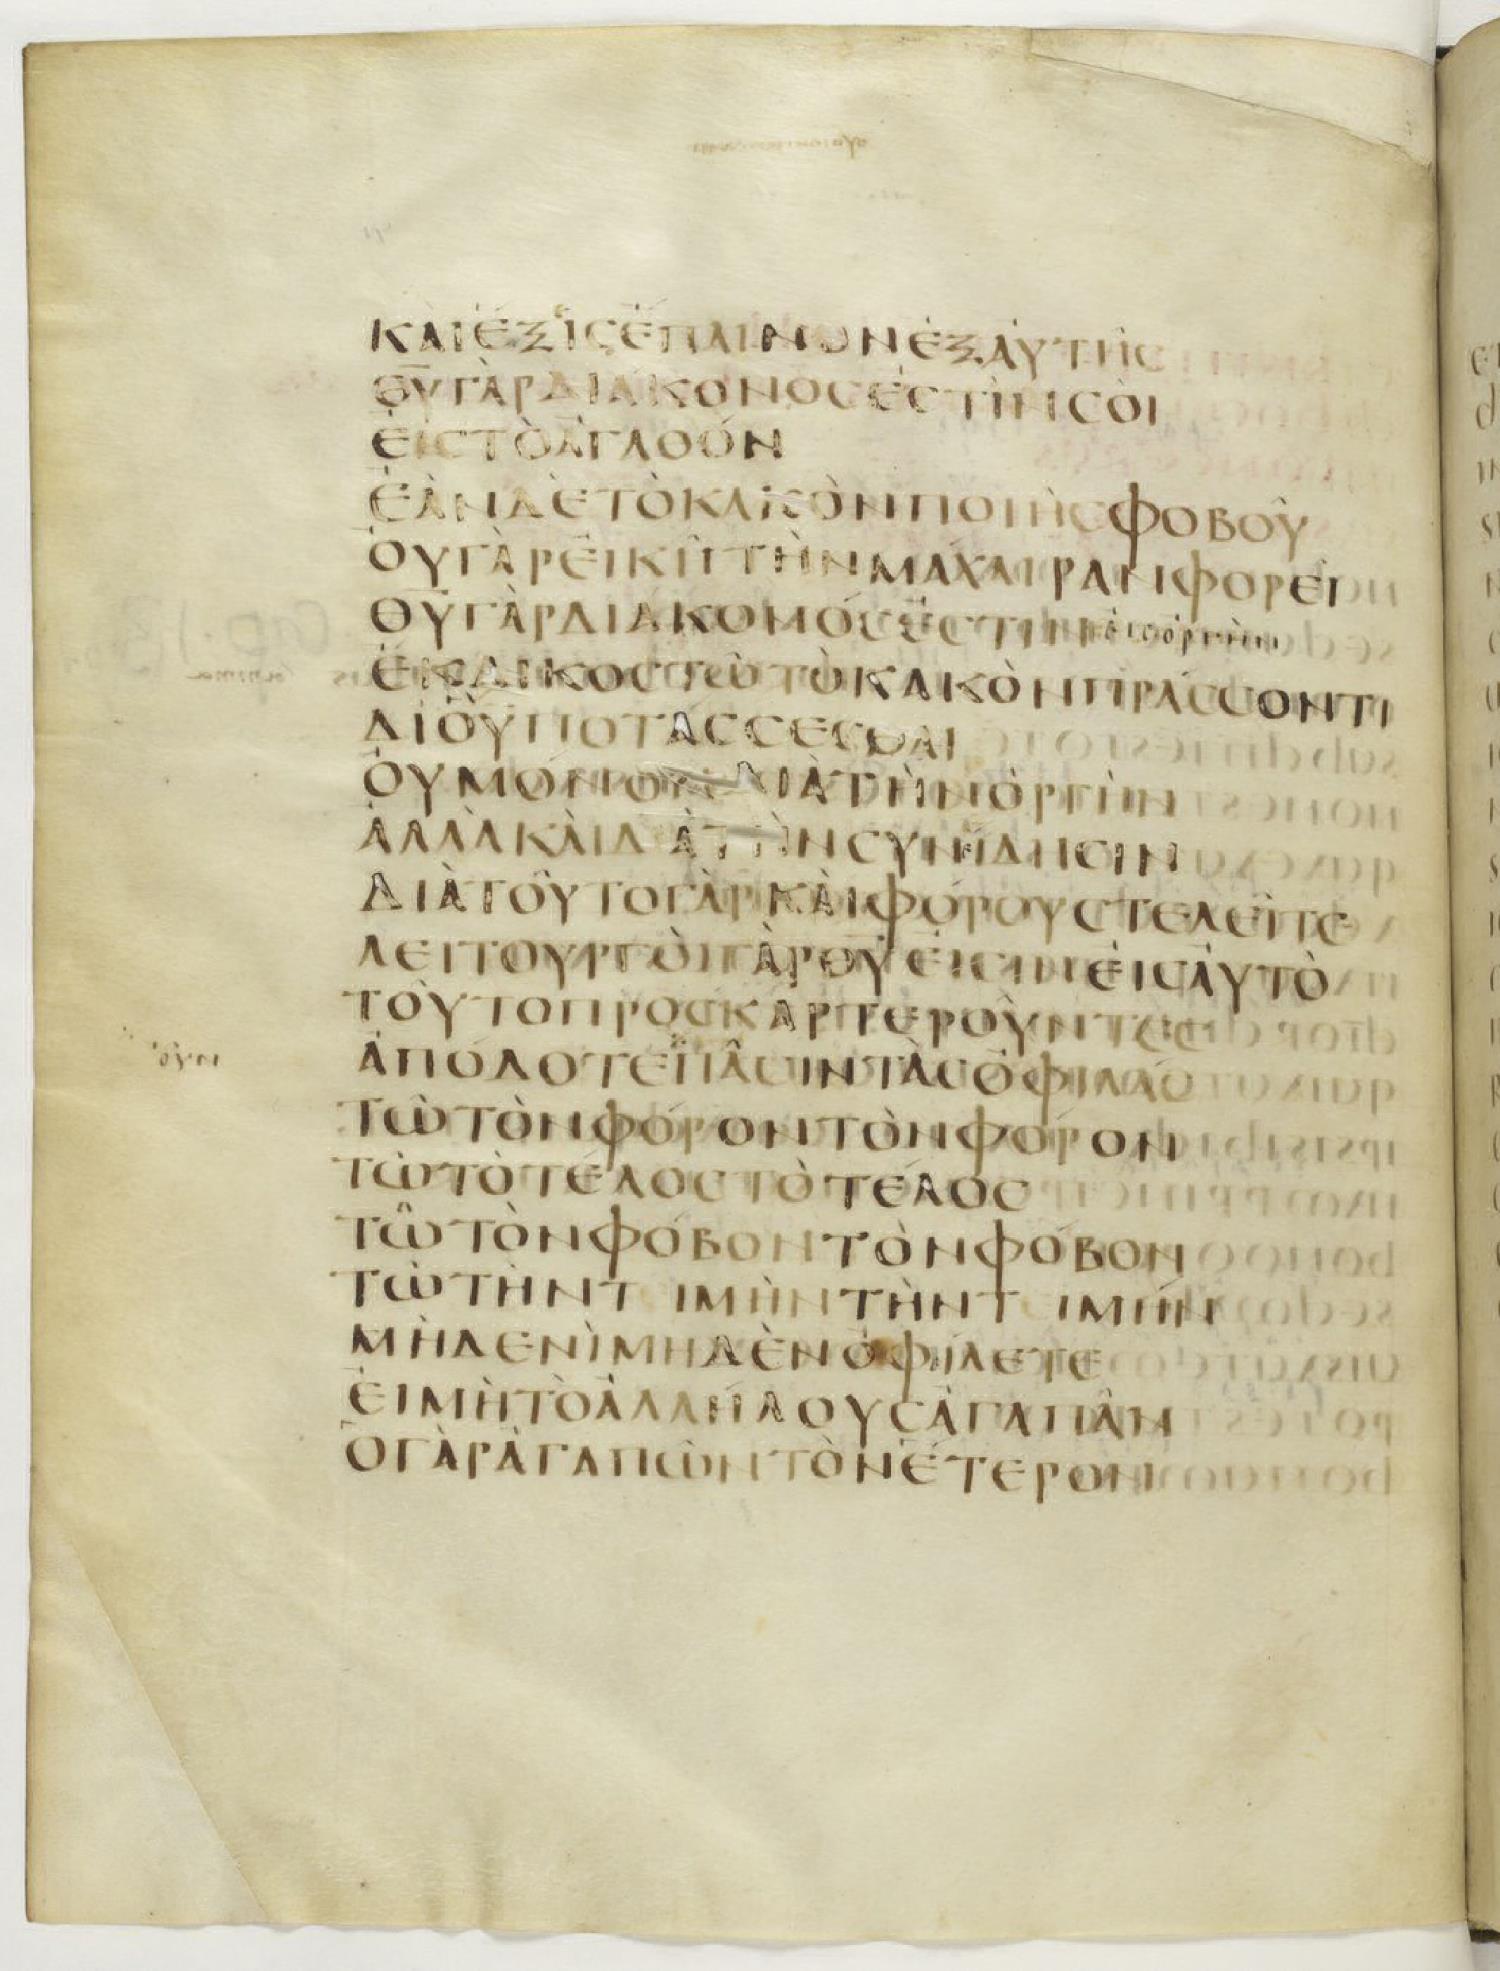 ΚΑΙ ΕΞΙϹ ΕΠΑΙΝΟΝ ΕΞ ΑΥΤΗϹ
Θ̅Υ̅ ΓΑΡ ΔΙΑΚΟΝΟϹ ΕϹΤΙΝ ϹΟΙ
ΕΙϹ ΤΟ ΑΓΑΘΟΝ
ΕΑΝ ΔΕ ΤΟ ΚΑΚΟΝ ΠΟΙΗϹ ΦΟΒΟΥ
ΟΥ ΓΑΡ ΕΙΚΗ ΤΗΝ ΜΑΧΑΙΡΑΝ ΦΟΡΕΙ
Θ̅Υ̅ ΓΑΡ ΔΙΑΚΟΝΟϹ ΕϹΤΙΝ εισοργην
ΕΚΔΙΚΟϹ ΤΩ ΤΟ ΚΑΚΟΝ ΠΡΑϹϹΟΝΤΙ
ΔΙΟ ΥΠΟΤΑϹϹΕϹΘΑΙ
ΟΥ ΜΟΝΟΝ ΔΙΑ ΤΗΝ ΟΡΓΗΝ
ΑΛΛΑ ΚΑΙ ΔΙΑ ΤΗΝ ϹΥΝΙΔΗϹΙΝ
ΔΙΑ ΤΟΥΤΟ ΓΑΡ ΚΑΙ ΦΟΡΟΥϹ ΤΕΛΕΙΤΕ
ΛΕΙΤΟΥΡΓΟΙ ΓΑΡ Θ̅Υ̅ ΕΙϹΙΝ ΕΙϹ ΑΥΤΟ
ΤΟΥΤΟ ΠΡΟϹΚΑΡΤΕΡΟΥΝΤΕϹ
ουν ΑΠΟΔΟΤΕ ΠΑϹΙΝ ΤΑϹ ΟΦΙΛΑϹ
ΤΩ ΤΟΝ ΦΟΡΟΝ ΤΟΝ ΦΟΡΟΝ
ΤΩ ΤΟ ΤΕΛΟϹ ΤΟ ΤΕΛΟϹ
ΤΩ ΤΟΝ ΦΟΒΟΝ ΤΟΝ ΦΟΒΟΝ
ΤΩ ΤΗΝ ΤΙΜΗΝ ΤΗΝ ΤΙΜΗΝ
ΜΗΔΕΝΙ ΜΗΔΕΝ ΟΦΙΛΕΤΕ
ΕΙ ΜΗ ΤΟ ΑΛΛΗΛΟΥϹ ΑΓΑΠΑΝ
Ο ΓΑΡ ΑΓΑΠΩΝ ΤΟΝ ΕΤΕΡΟΝ